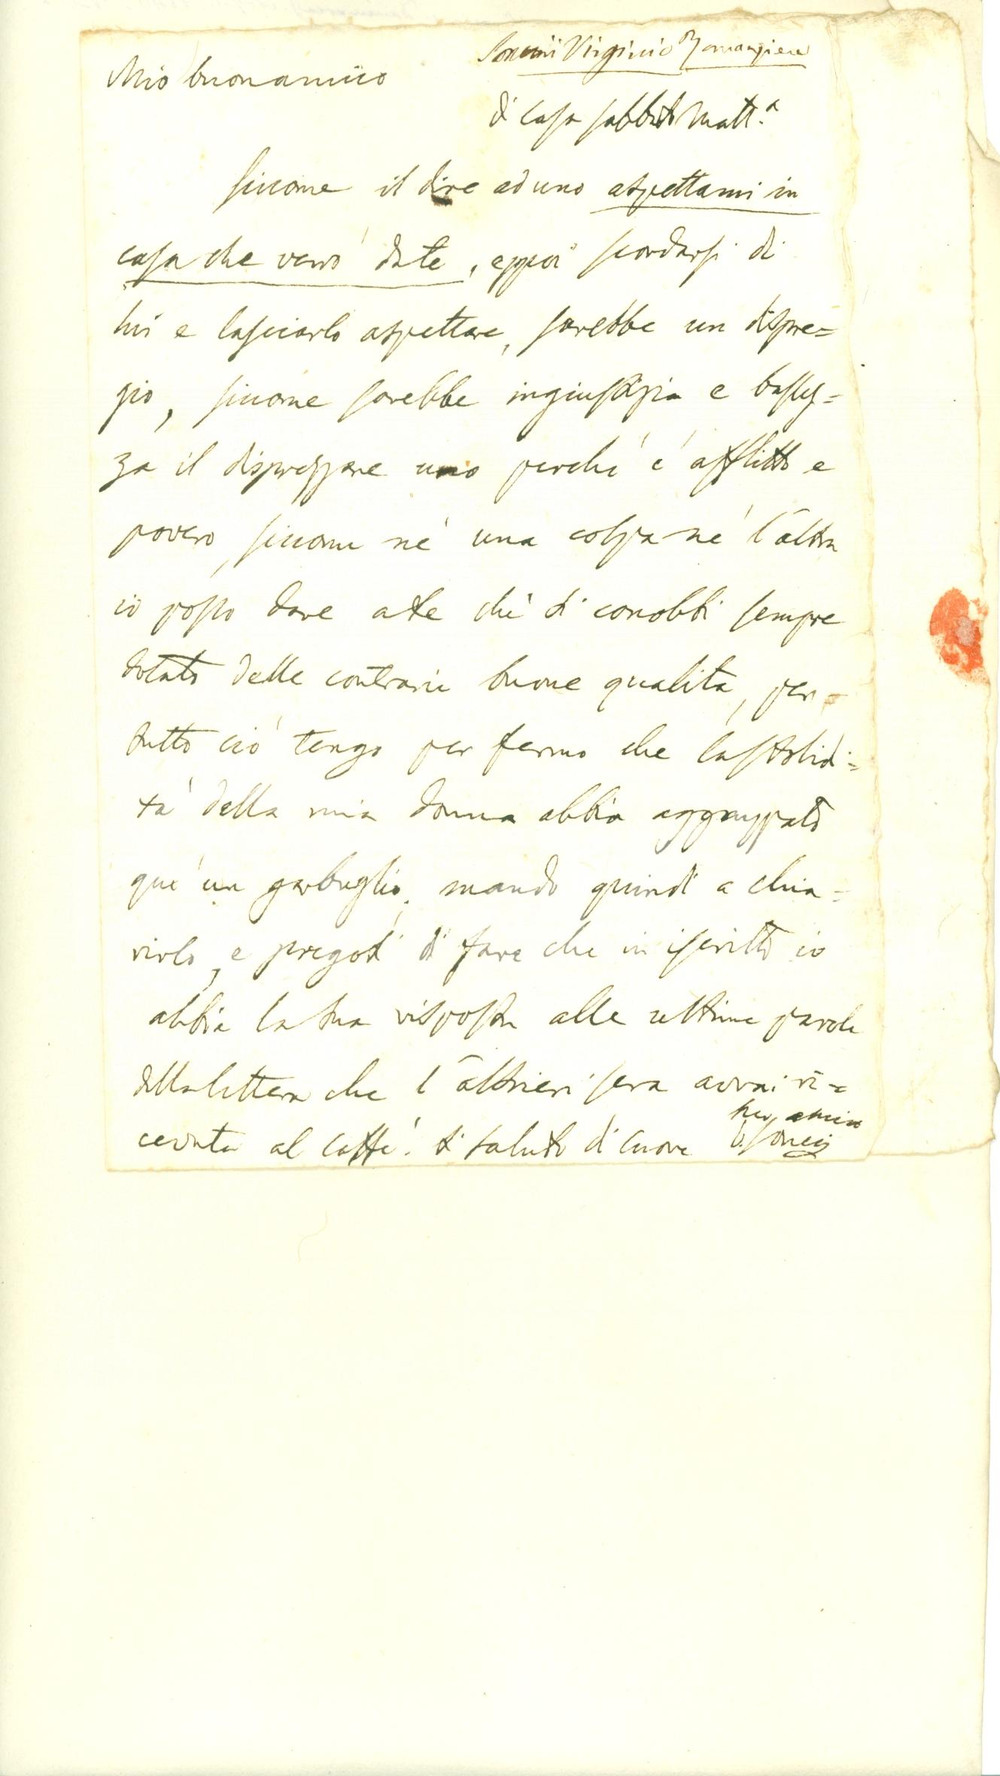 Soncini Virginio Romanziere
Mio buonamico
di casa sabbato Matt.ª
siccome il dire ad uno aspettami in
casa che verrò da te, eppoi scordarsi di
lui e lasciarlo aspettare, sarebbe un dispre=
gio, siccome sarebbe ingiustizia e bassez=
za il disprezzare uno perché é afflitto e
povero, siccome né una colpa né l'altra
io posso dare a te che ti conobbi sempre
dotato delle contrarie buone qualita, per=
tutto ció tengo per fermo che la stolidi=
tà della mia donna abbia aggruppato
qui un garbuglio, mando quindi a chia=
rirlo, e pregoti di fare che in iscritto io
abbia la tua risposta alle ultime parole
della lettera che l'altrieri sera avrai ri=
cevuta al caffé. ti saluto di cuore
tuo amico
V. Soncini